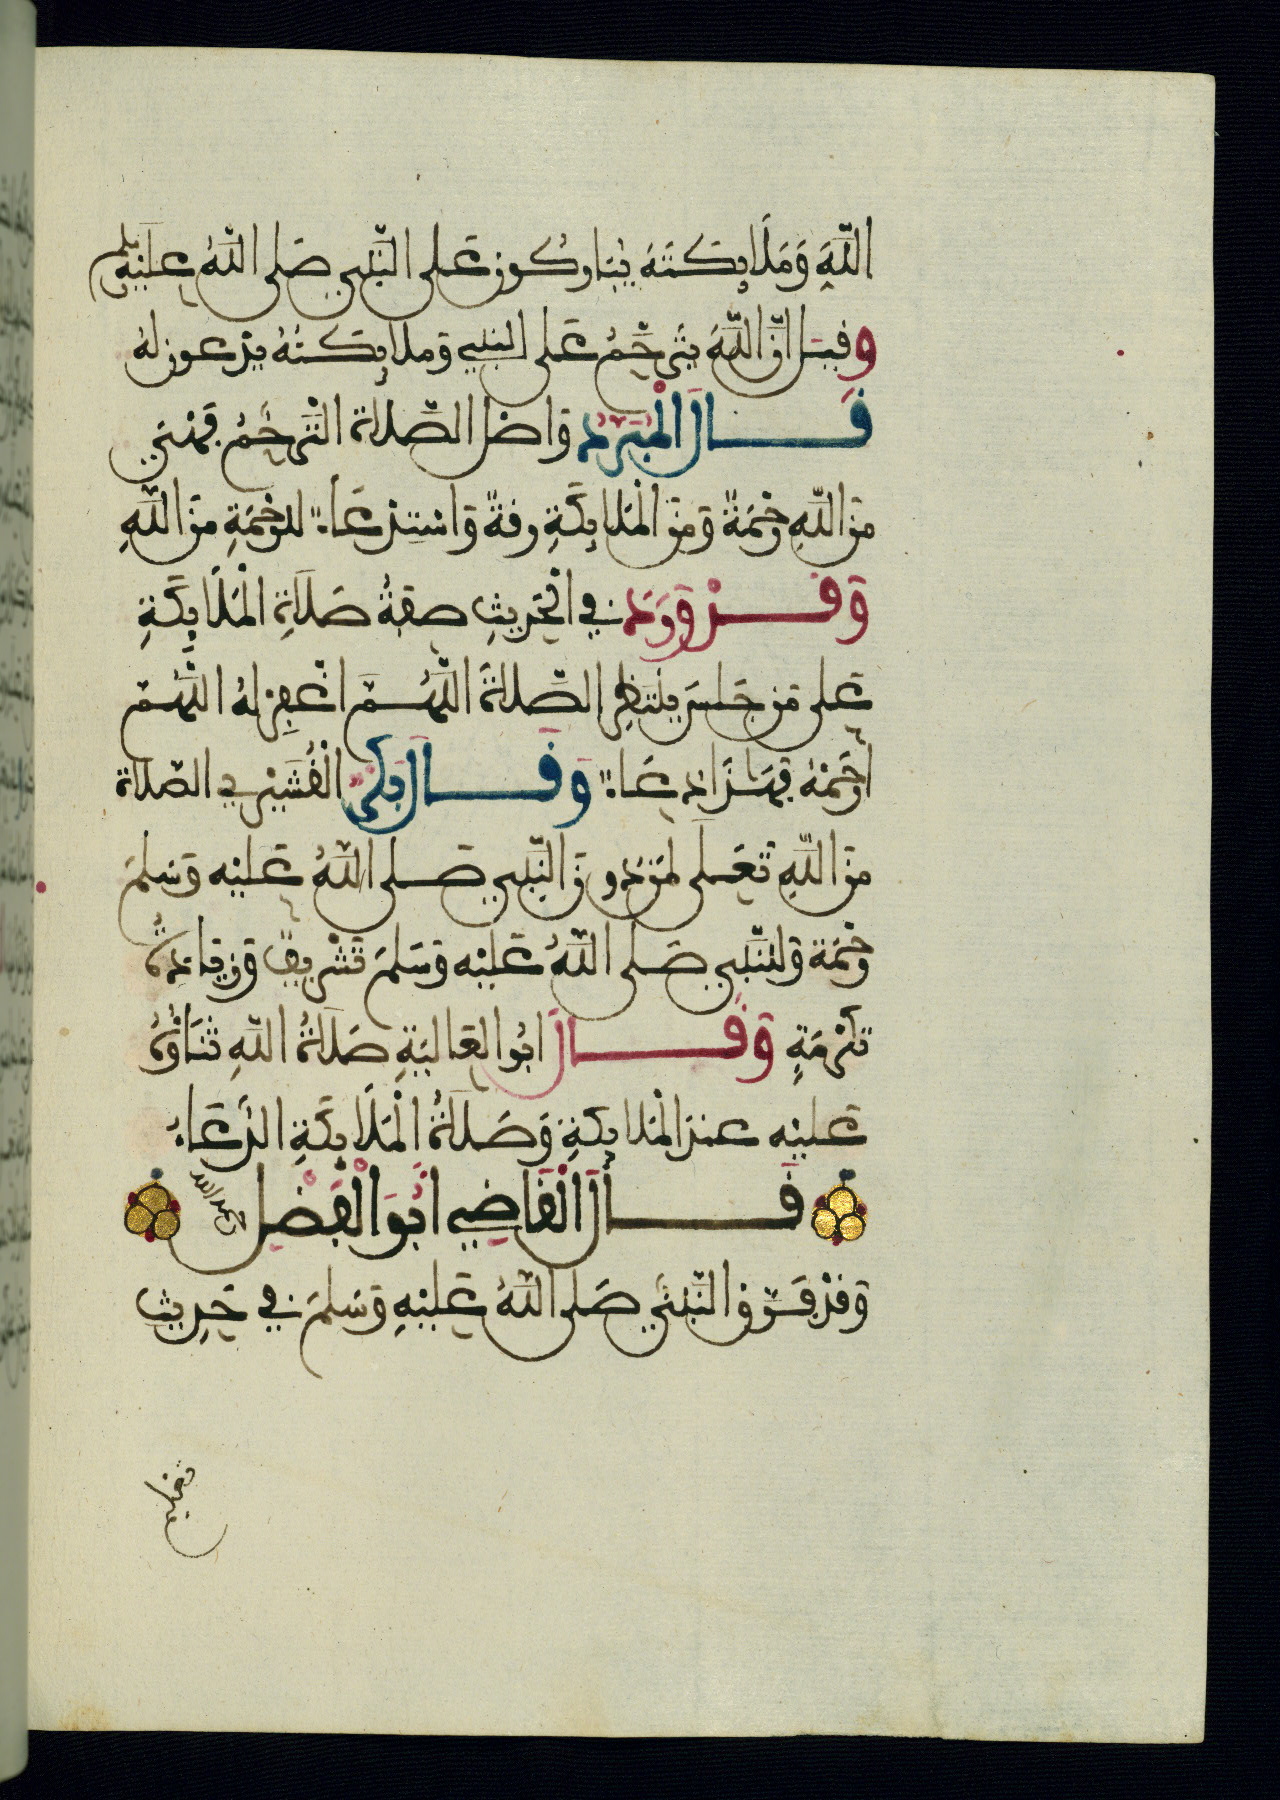 اللَّهَ وَمَلَائِكَتَهُ يُبَارِكُونَ عَلَى النَّبِيِّ صَلَّى اللَّهُ عَلَيْهِ وسلم
وقيل انَّ اللَّهَ يَتَرَحَّمُ عَلَى النبي وَملائكتهُ يَدْعون لهُ
قَالَ الْمُبَرِّدُ وَاصْل الصَّلاة التَّرَحُّمُ فَهْيَ
مِنَ اللَّهِ رَحْمَةٌ وَمِنَ الْمَلَائِكَةِ رِقةٌ وَاسْتِدْعَاءٌ للرَّحْمَةِ مِنَ اللَّهِ
وَقَدْ وَرَدَ فِي الْحَدِيثِ صِفَةُ صَلَاةِ الْمَلَائِكَةِ
عَلَى مَن جَلَسَ يَنْتَظِرُ الصَّلاةَ اللَّهُمَّ اغْفِرْ لهُ اللَّهُمَّ
ارْحَمْهُ فَهَذَا دُعَاءٌ وَقَالَ بَكْرٌ الْقُشَيْرِي الصّلاة
مِنَ اللَّهِ تَعَلَى لِمَن دُونَ النَّبِيِّ صَلَّى اللَّهُ عَلَيْهِ وَسَلَّمَ
رَحْمَة وَلِلنَّبِي صَلَّى اللَّهُ عَلَيْهِ وَسَلَّمَ تَشْرِيفٌ وَزِيَادَةُ
تَكْرِمَةٍ وَقَالَ ابُو الْعَالِيَةِ صَلَاةُ اللَّهِ ثَنَاؤُهُ
عَلَيْهِ عِنْدَ الْمَلائِكَةِ وَصَلَاةُ الْمَلَائِكَةِ الدُّعَاءُ
قَالَ الْقَاضِي ابُو الْفَضْلِ رحمه الله
وَقَدْ فَرَّقَ النَّبِيُّ صَلَّى اللَّهُ عَلَيْهِ وَسَلَّمَ فِي حَدِيثِ
تعليم